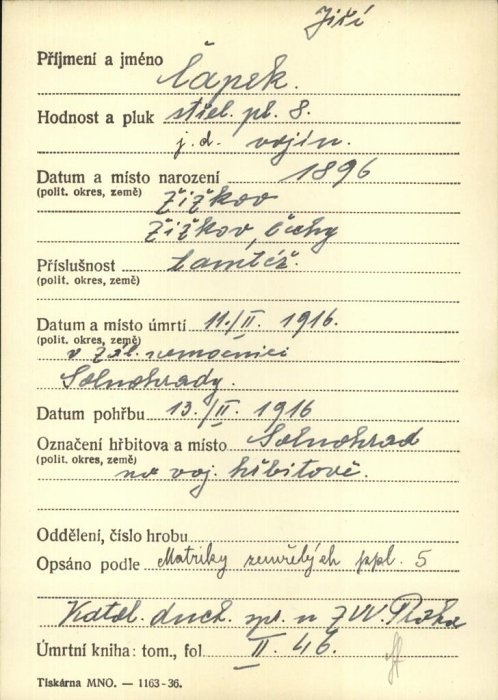 Jiří
Příjmení a jméno Čapek.
Hodnost a pluk střel. pl. 8.
j. d. vojín.
Datum a místo narození 1896
(polit. okres, země) Žižkov
Žižkov, Čechy
Příslušnost tamtéž.
(polit. okres, země)
Datum a místo úmrtí 11./II. 1916.
(polit. okres, země) v zál. nemocnici
Solnohrady.
Datum pohřbu 13./II. 1916
Označení hřbitova a místo Solnohrad
(polit. okres, země) na voj. hřbitově.
Oddělení, číslo hrobu
Opsáno podle Matriky zemřelých ppl. 5
Katol. duch. spr. u ZVV. Praha
Úmrtní kniha: tom., fol. II. 46.
Tiskárna MNO. — 1163-36.